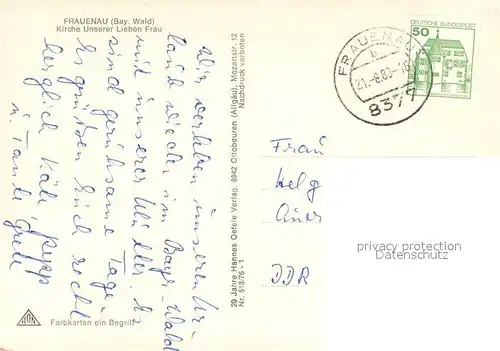 FRAUENAU (Bay. Wald)
Kirche Unserer Lieben Frau
Wir verleben unseren Ur-
laub wieder im Bayr. Wald
mit unserer Mutter. Es
sind geruhsame Tage.
Es grüßen Euch recht
herzlich Käte, Sepp
u. Tante Gretl
20 Jahre Hannes Oefele Verlag, 8942 Ottobeuren (Allgäu), Mozartstr. 12
Nr. 518/78 - 1 Nachdruck verboten
HOV
Farbkarten ein Begriff
FRAUENAU
b
21.-8.80-18
8377
50
DEUTSCHE BUNDESPOST
Frau
Helg
DDR
privacy protection
Datenschutz